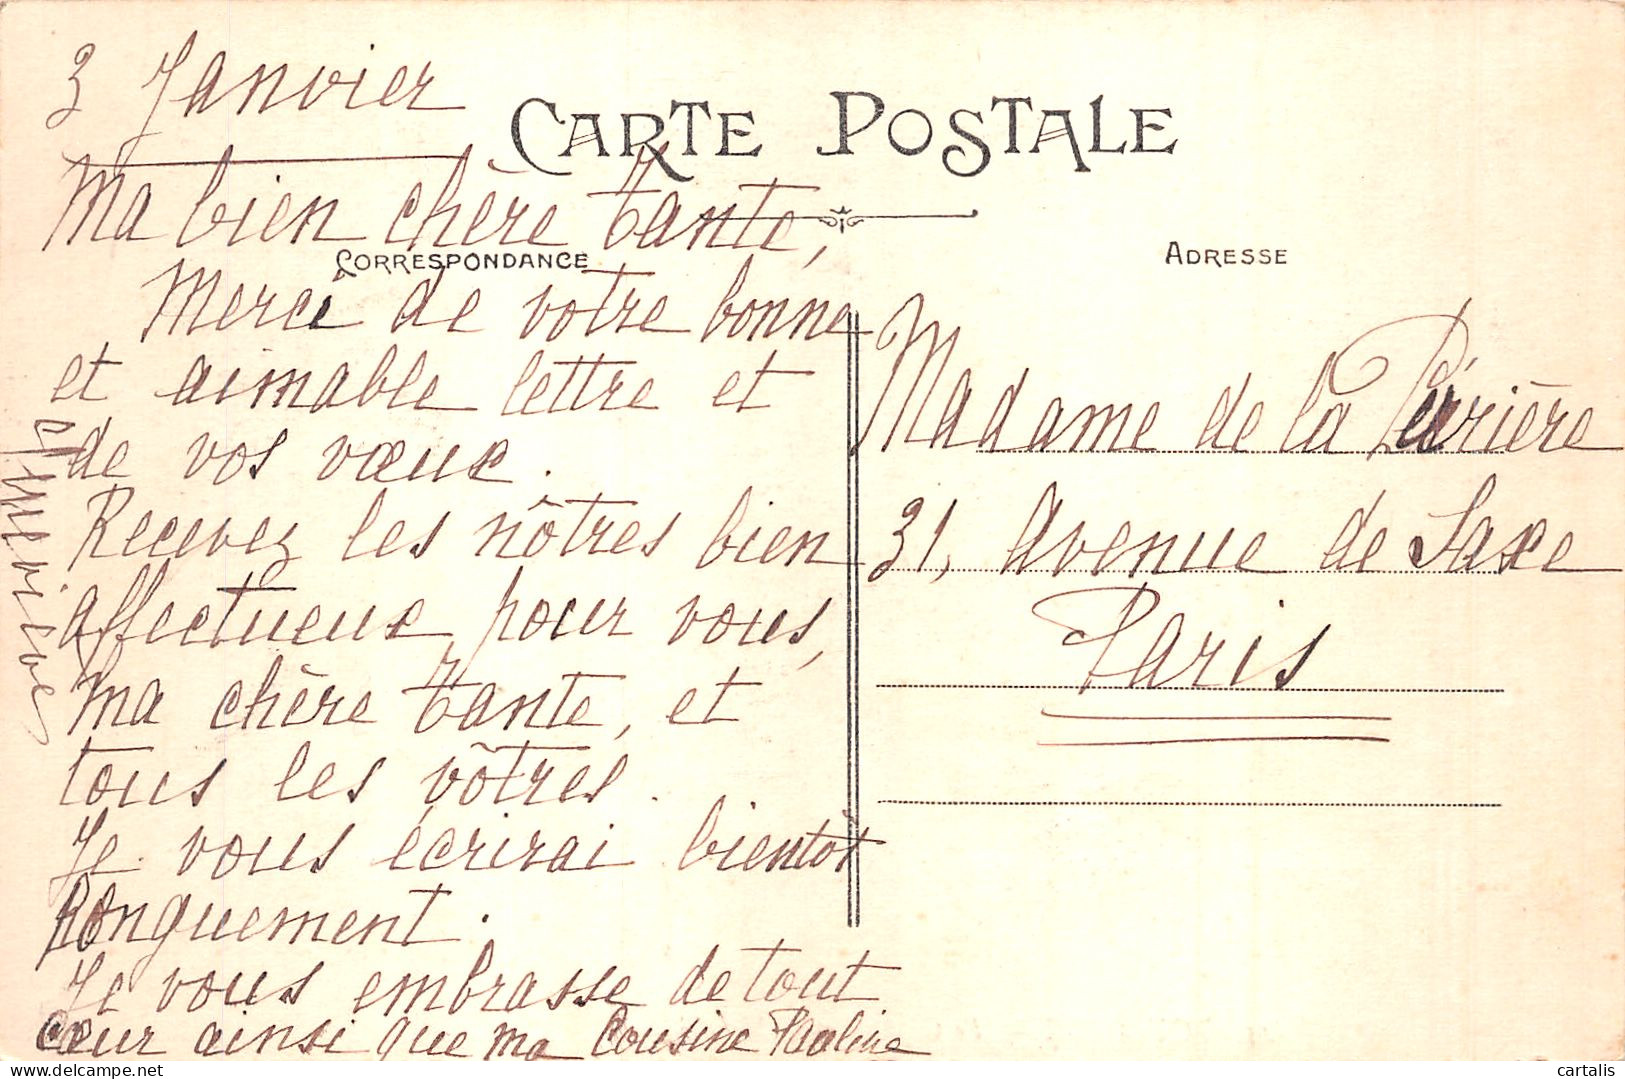 3 Janvier
CARTE POSTALE
Ma bien chère Tante,
CORRESPONDANCE
Merci de votre bonne
et aimable lettre et
de vos vœux.
Recevez les nôtres bien
affectueux pour vous,
Ma chère Tante, et
tous les vôtres.
Je vous écrirai bientôt
longuement.
Je vous embrasse de tout
cœur ainsi que ma Cousine Pauline
ADRESSE
Madame de la Perrière
31, Avenue de Saxe
Paris
delcampe.net
cartalis